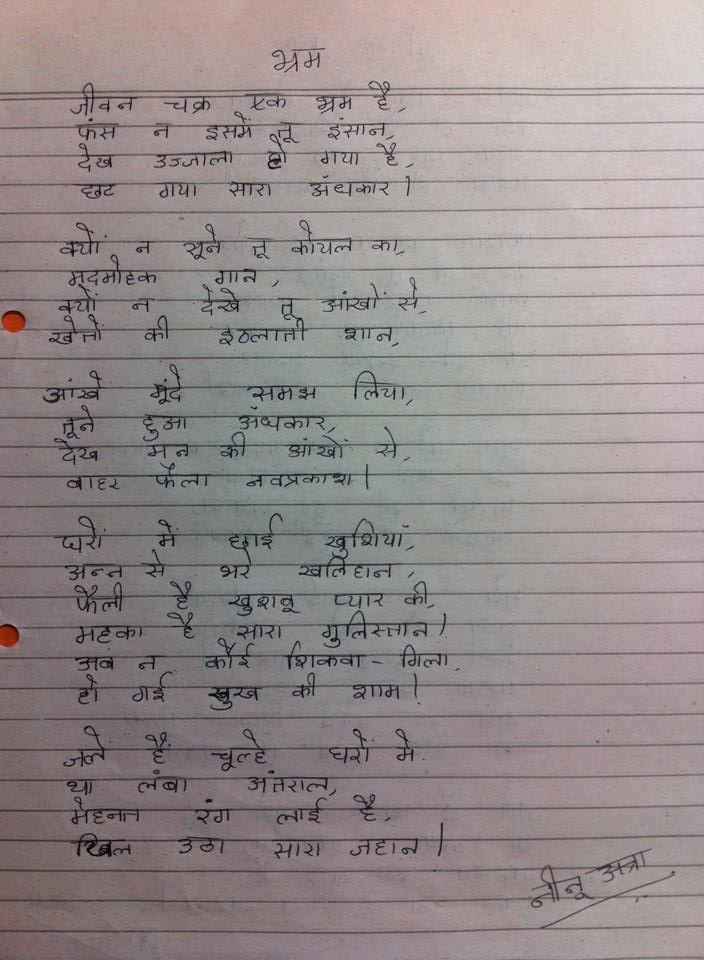 भ्रम
जीवन चक्र एक भ्रम है,
फंस न इसमें तू इंसान,
देख उज्जाला हो गया है,
छट गया सारा अंधकार।
क्यों न सूने तू कोयल का,
मदमोहक गान,
क्यों न देखे तू आंखों से,
खेतों की इठलाती शान,
आंखे मूंदे समझ लिया,
तूने हुआ अंधकार,
देख मन की आंखों से,
बाहर फैला नवप्रकाश।
घरों में छाई खुशियां,
अन्न से भरे खलिहान,
फैली है खुशबू प्यार की,
महका है सारा गुलिस्तान।
अब न कोई शिकवा - गिला,
हो गई सुख की शाम।
जले हैं चूल्हे घरों में.
था लंबा अंतराल,
मेहनत रंग लाई है,
खिल उठा सारा जहान।
नीनू अत्रा